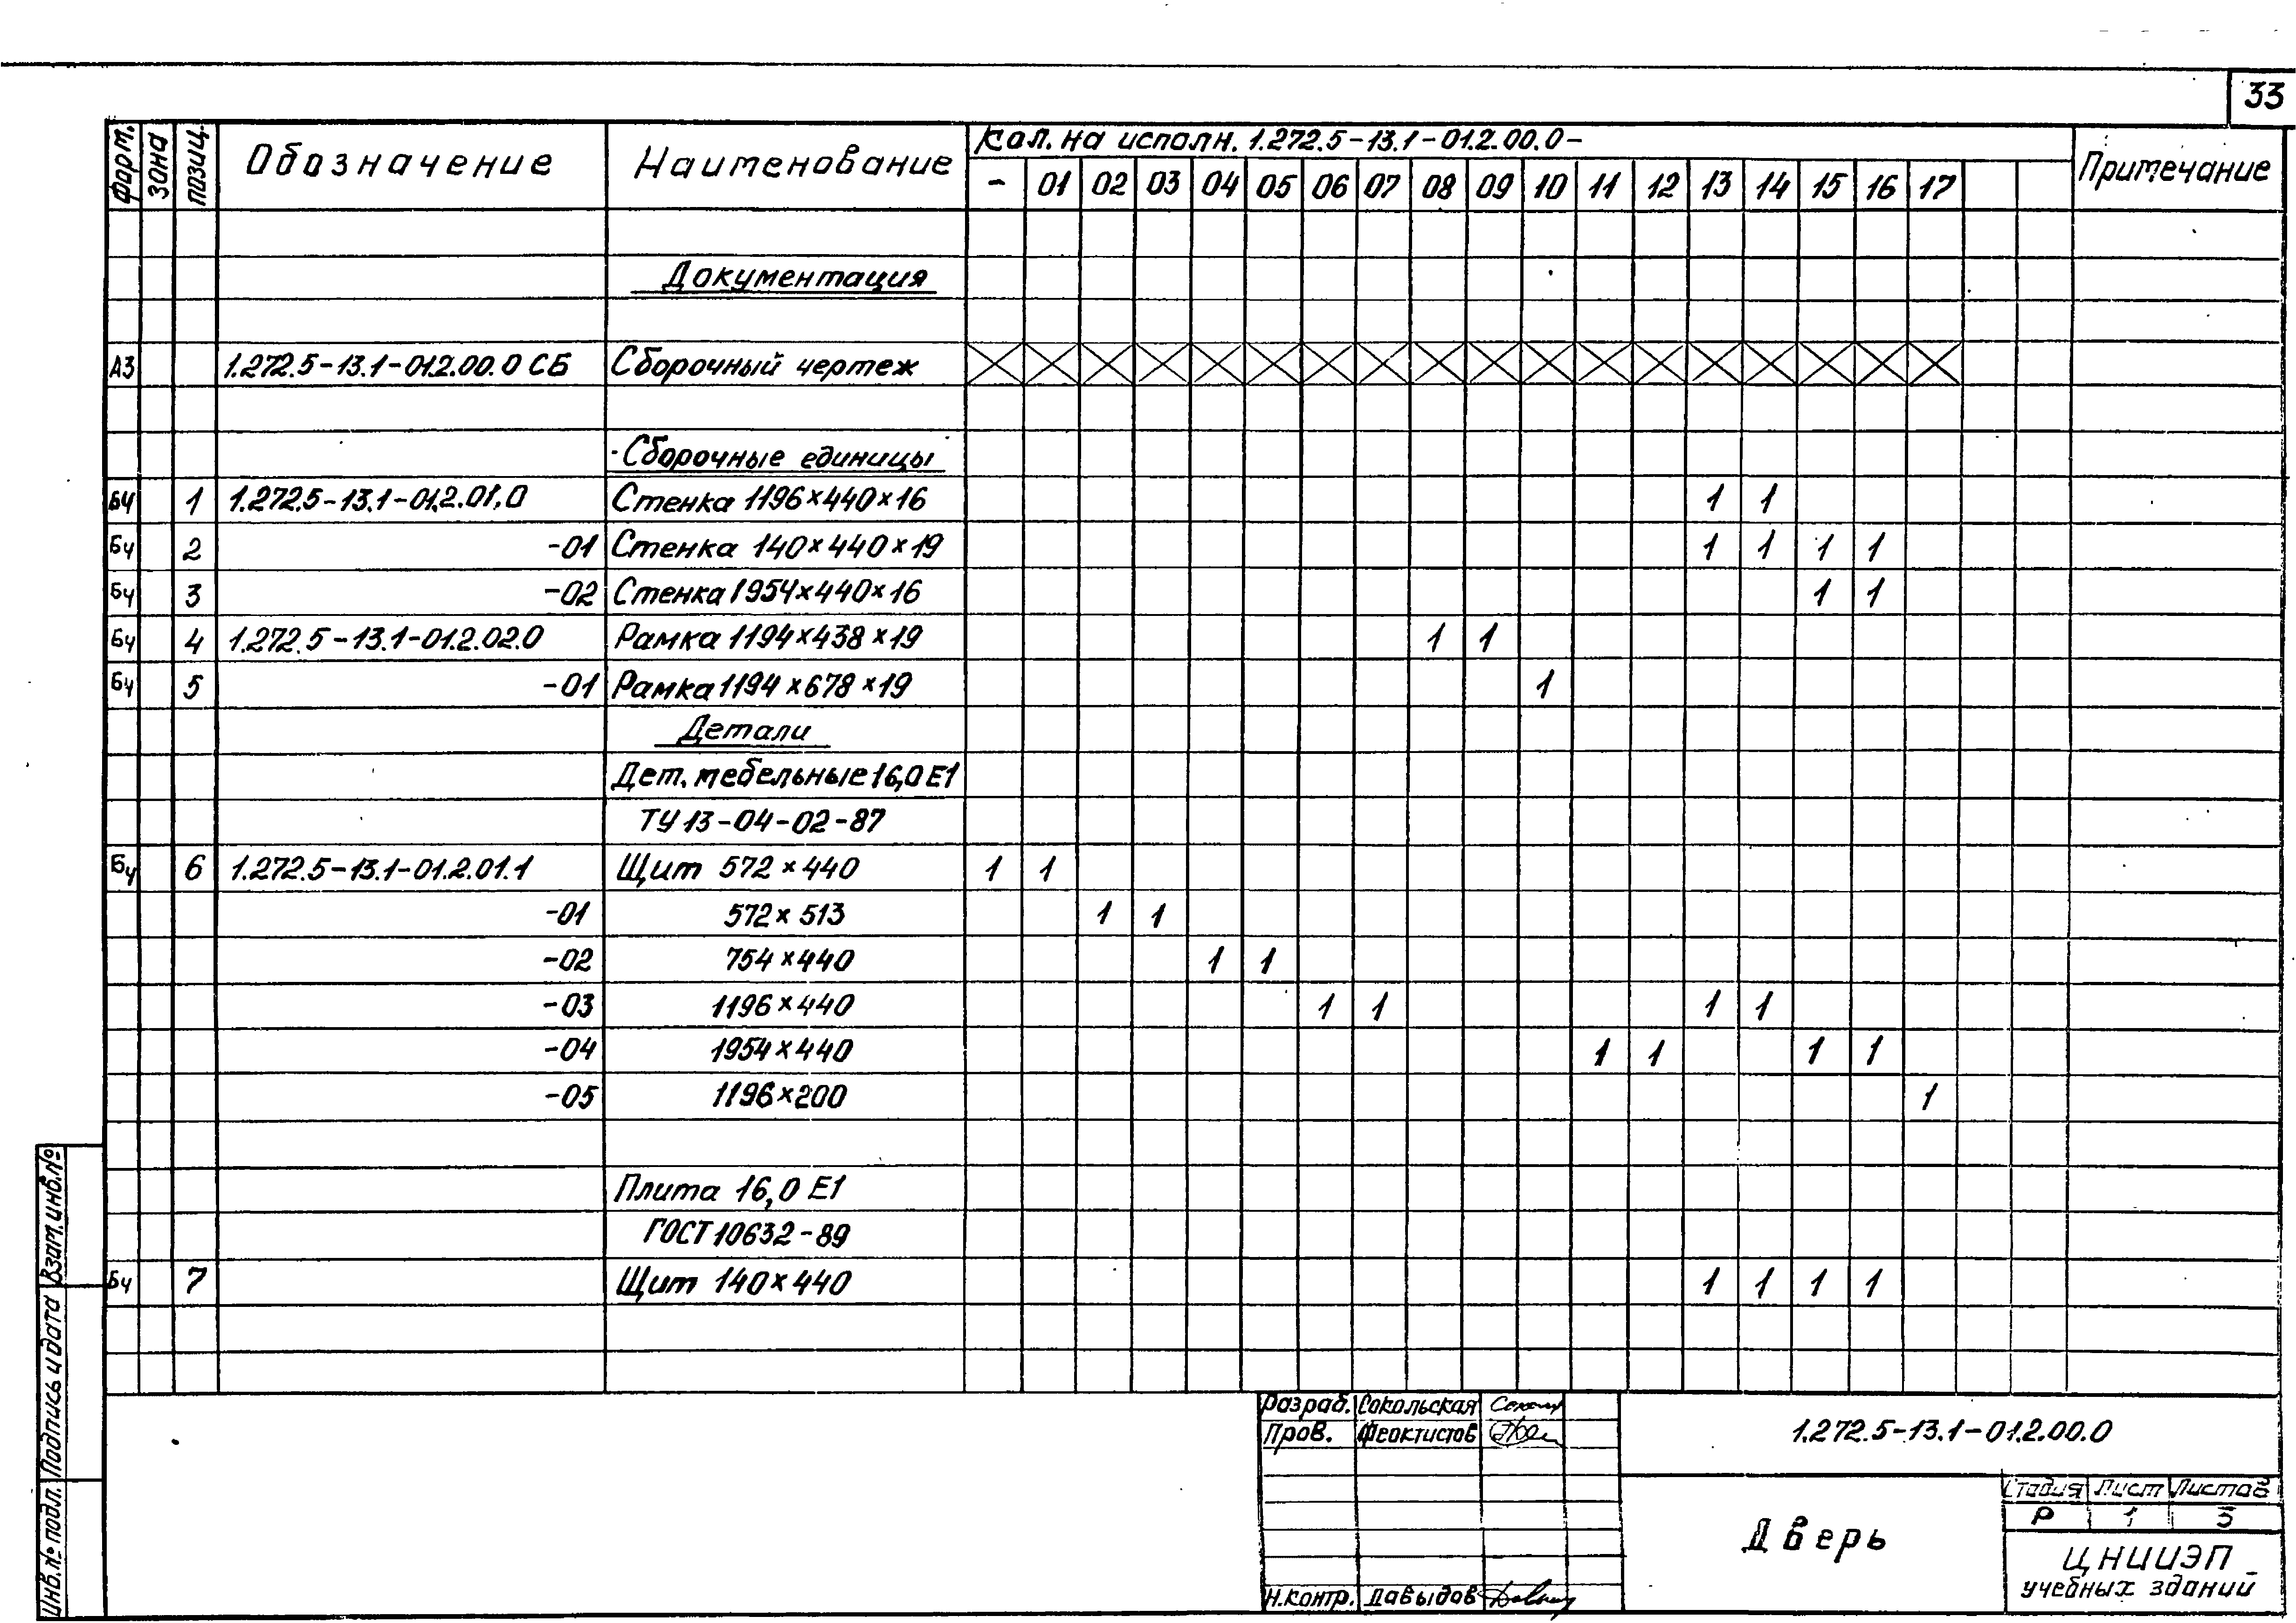 33
форм. зона позиц. Обозначение Наименование Кол. на исполн. 1.272.5-13.1-01.2.00.0- Примечание
- 01 02 03 04 05 06 07 08 09 10 11 12 13 14 15 16 17
Документация
А3 1.272.5-13.1-01.2.00.0 СБ Сборочный чертеж
Сборочные единицы
БЧ 1 1.272.5-13.1-01.2.01.0 Стенка 1196×440×16 1 1
БЧ 2 -01 Стенка 140×440×19 1 1 1 1
БЧ 3 -02 Стенка 1954×440×16 1 1
БЧ 4 1.272.5-13.1-01.2.02.0 Рамка 1194×438×19 1 1
БЧ 5 -01 Рамка 1194×678×19 1
Детали
Дет. мебельные 16,0 Е1
ТУ 13-04-02-87
БЧ 6 1.272.5-13.1-01.2.01.1 Щит 572×440 1 1
-01 572×513 1 1
-02 754×440 1 1
-03 1196×440 1 1 1 1
-04 1954×440 1 1 1 1
-05 1196×200 1
Плита 16,0 Е1
ГОСТ 10632-89
БЧ 7 Щит 140×440 1 1 1 1
Разраб. Сокольская
Пров. Феоктистов
Н.контр. Давыдов
1.272.5-13.1-01.2.00.0
Дверь
Стадия Лист Листов
Р 1 5
ЦНИИЭП
учебных зданий
Инв.№ подл. Подпись и дата Взам.инв.№